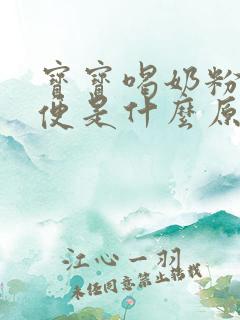 寶寶喝奶粉
便是什麼原
江心一羽
未经同意禁止转载